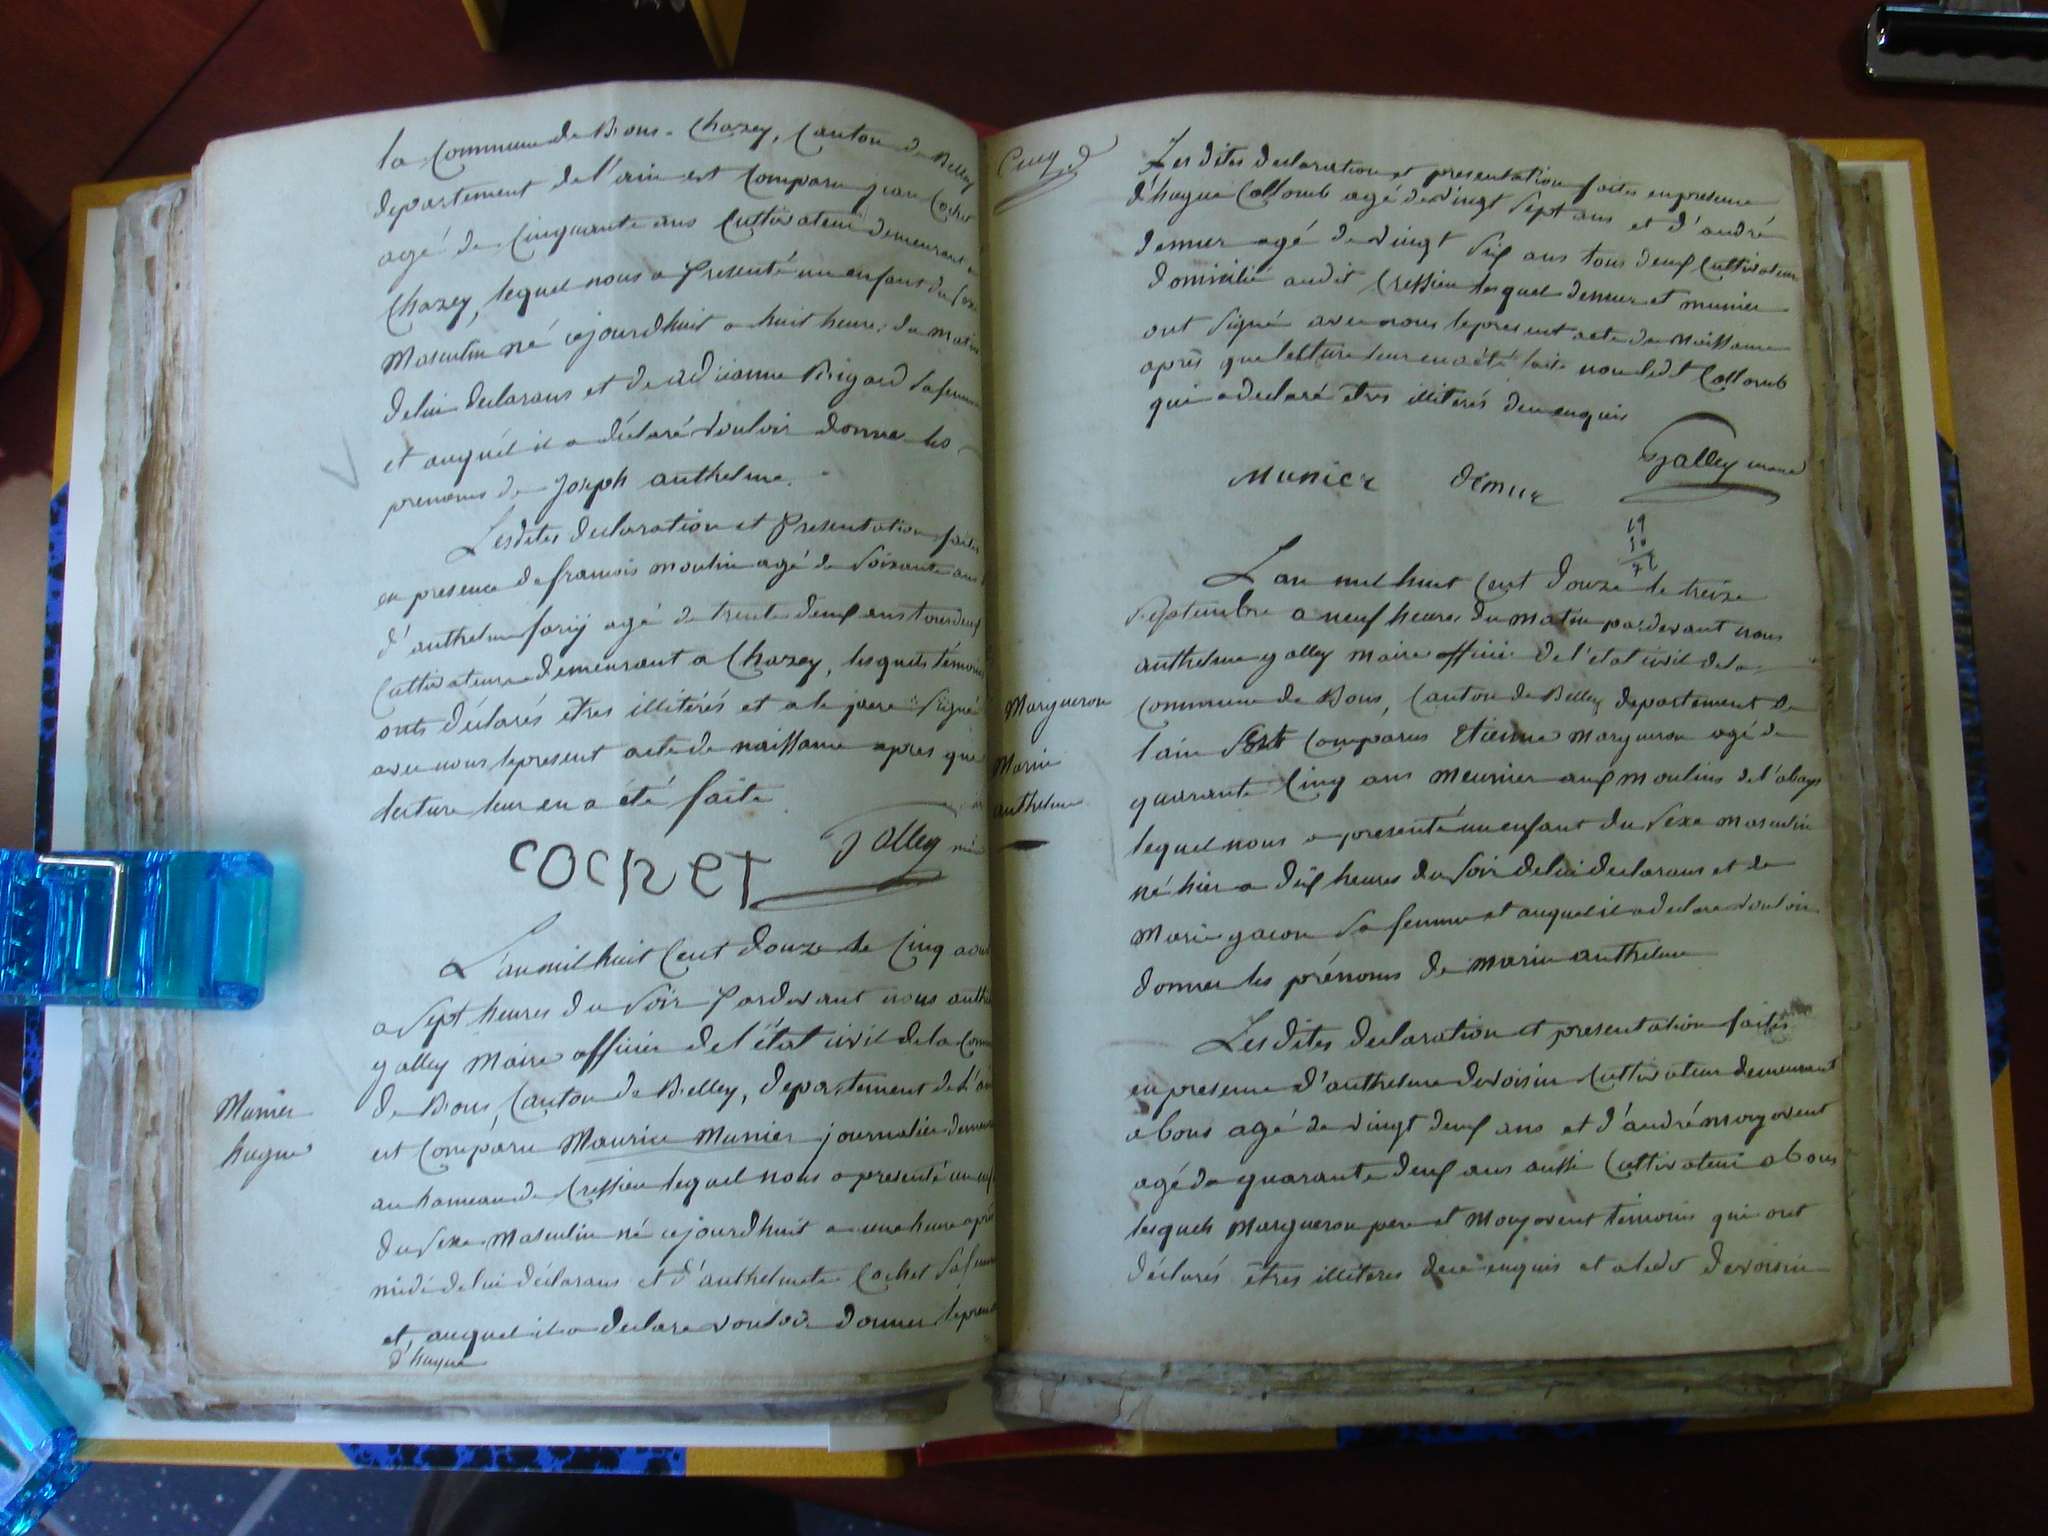 la Commune de Bons-Chazey, Canton de Belley
departement de l'ain est Comparu jean Cochet
agé de Cinquante ans Cultivateur demeurant a
Chazey, lequel nous a Presenté un enfant du sexe
Masculin né cejourdhuit a huit heures du matin
de lui declarans et de Rigard sa femme
et auquel il a déclaré vouloir donner les
prenoms de Joseph anthelme.
Lesdites declaration et Presentation faites
en presence de francois moulin agé de soixante ans
d'anthelme agé de trente deux ans tous deux
Cultivateurs demeurant a Chazey, lesquels témoins
onts déclarés êtres illitérés et a le pere signé
avec nous le present acte de naissance apres que
lecture leur en a été faite
COCHET galley maire
L'an mil huit Cent douze le Cinq aout
a sept heures du soir Pardevant nous anthelme
galley Maire officier de l'état civil de la Commune
de Bons, Canton de Belley, departement de l'ain
Munier
hugue
est Comparu Maurice Munier journalier demeurant
au hameau de Cressieu lequel nous a presenté un enfant
du sexe Masculin né cejourdhuit a une heure après
midi de lui déclarans et d'anthelmete Cochet sa femme
et, auquel il a declare vouloir donner le prenom
d'hugue
Lesdites declaration et presentation faites en presence
d'hugue Collomb agé de vingt sept ans et d'andré
demur agé de vingt six ans tous deux Cultivateurs
domicilié audit Cressieu lesquel demur et munier
ont signé avec nous le present acte de Naissance
après que lecture leur en a été faite non ledt Collomb
qui a declaré etres illiterés de ce enquis
Munier demur galley maire
19
L'an mil huit Cent douze le treize
Septembre a neuf heures du matin pardevant nous
anthelme galley Maire officier de l'état civil de la
Margueron
Marin
anthelme
Commune de Bons, Canton de Belley departement de
l'ain sont Comparus Etienne Margueron agé de
quarante Cinq ans Meunier aux Moulins de l'abaye
lequel nous a presenté un enfant du sexe Masculin
né hier a dix heures du soir de lui declarans et de
Marie gacon sa femme et auquel il a declare vouloir
donner les prénoms de Marin anthelme
Lesdites declaration et presentation faites
en presence d'anthelme devoisin Cultivateur demeurant
a bons agé de vingt deux ans et d'andré
agé de quarante deux ans aussi Cultivateur a bons
lesquels Margueron pere et temoins qui ont
déclarés êtres illiteres de ce enquis et a ledt devoisin